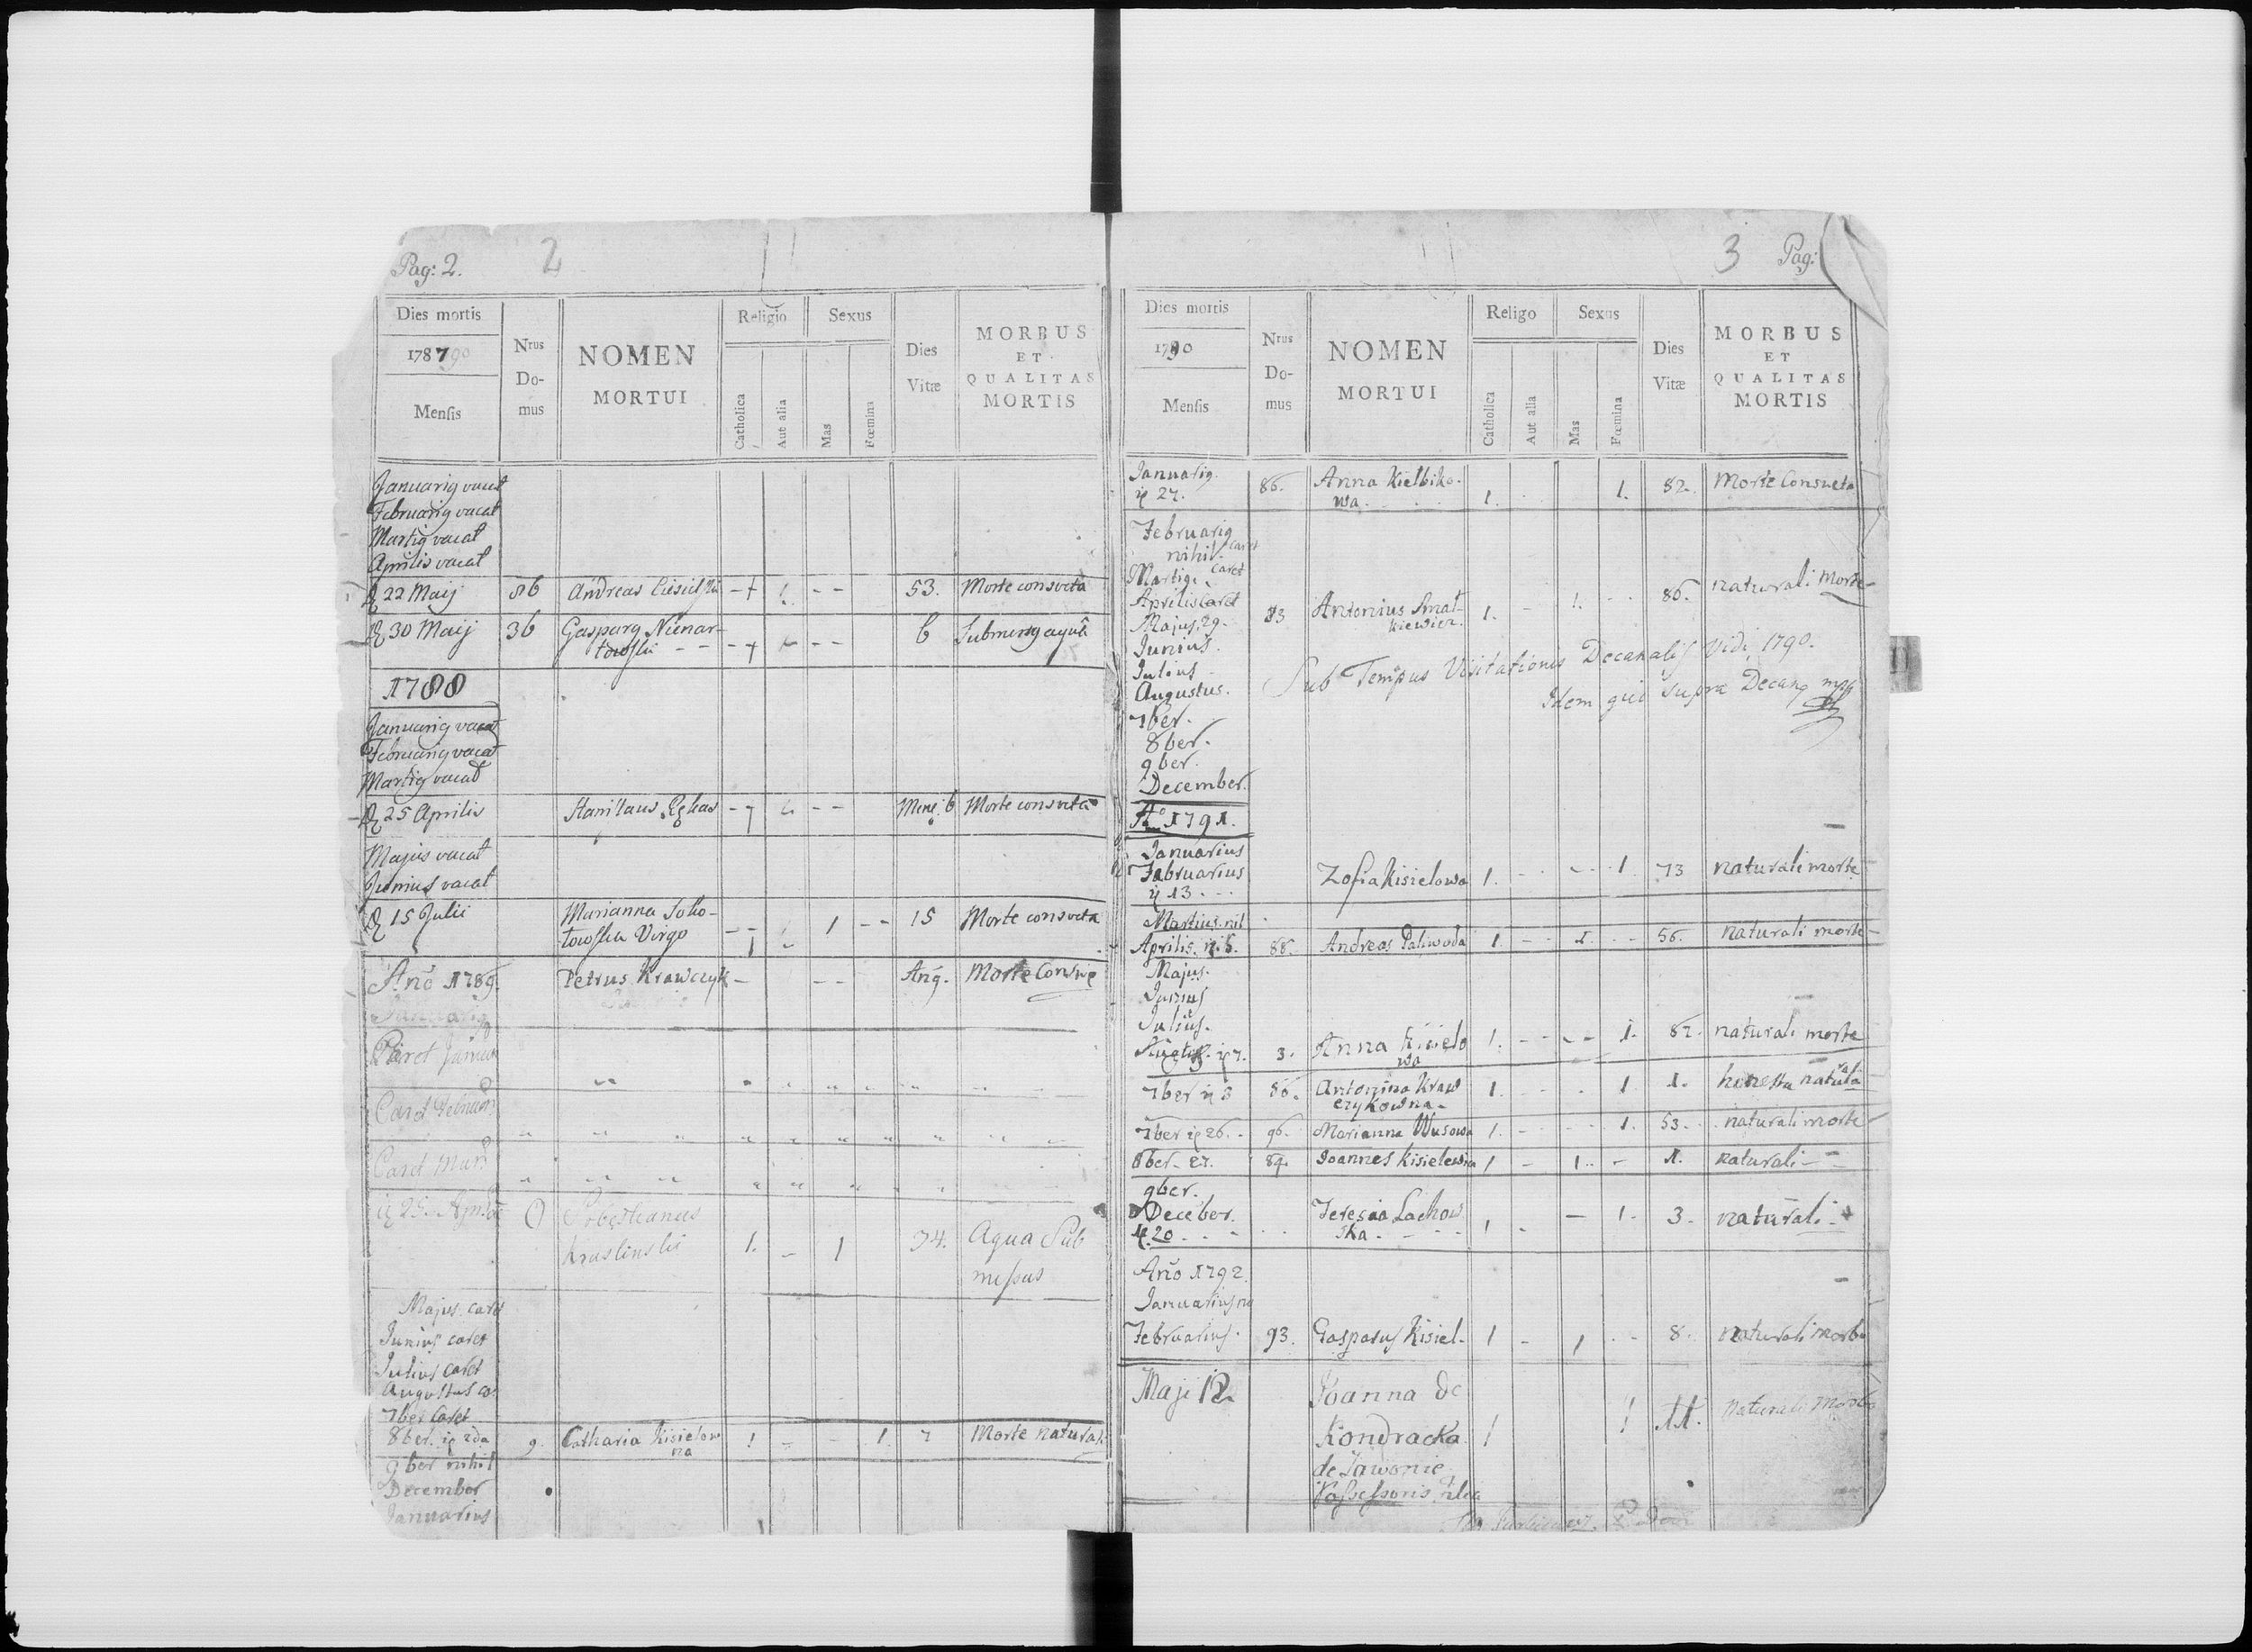 Pag: 2.
2
Dies mortis
178790
Mensis
Nrus
Do-
mus
NOMEN
MORTUI
Religio
Catholica
Aut alia
Sexus
Mas
Fœmina
Dies
Vitæ
MORBUS
ET
QUALITAS
MORTIS
Januarig vacat
Februarig vacat
Martig vacat
Aprilis vacat
22 Maij 86 Andreas 53. Morte consveta
30 Maij 36 Gasparg Nienar- 6 Submersg aquâ
towski
1788
Januarig vacat
Februarig vacat
Martig vacat
25 Aprilis Stanislaus Mens. 6 Morte consveta
Majus vacat
Junius vacat
15 Julii Marianna Soko- 1 15 Morte consveta
towska Virgo
Año 1789. Petrus Krawczyk Morte
Januarig
Caret
Caret
Caret
25. Sebestianus
1. 1 34. Aqua Sub
missus
Majus caret
Junius caret
Julius caret
Augustus ca
7ber caret
8ber. 2da 9. Catharia Kisielow 1 1. 7 Morte natural
na
9ber nihil
December
Januarius
3
Pag:
Dies mortis
1790
Mensis
Nrus
Do-
mus
NOMEN
MORTUI
Religo
Catholica
Aut alia
Sexus
Mas
Fœmina
Dies
Vitæ
MORBUS
ET
QUALITAS
MORTIS
Januarig.
27. 86. Anna Kielbiko- 1. 1. 82. Morte Consveta
wa
Februarig
nihil. caret
Martig. caret
Aprilis caret
Majus. 29. 83 Antonius Smat- 1. 1. 86. naturali morte
kiewicz.
Junius.
Julius
Augustus.
Sub Tempus Visitationis Decanalis Vidi 1790.
Idem qui supra Decang mpp
7ber.
8ber.
9ber.
December.
Aº 1791.
Januarius
Februarius
13 Zofia Kisielowa 1. 1. 73 naturali morte
Martius. nil
Aprilis. 88. Andreas Paliwoda 1. 1. 56. naturali morte
Majus.
Junius
Julius.
7. 3. Anna Kisielo 1. 1. 82. naturali morte
wa
7ber 3 86. Antonina Kraw 1. 1 1.
czykowna
7ber 26. 96. Marianna Wusowa 1. 1. 53. naturali morte
8ber. 27. 89. Joannes Kisielewicz 1 1. 1. naturali
9ber.
Deceber.
20 Teresia Lachow 1 1. 3. naturali
ska
Año 1792.
Januarius
Februarius. 93. Gasparus Kisiel. 1 1 8. naturali morbo
Maji 12 Joanna de 1 1 11. Naturali Morbo
Kondracka
de Jawonie
Possessoris filia